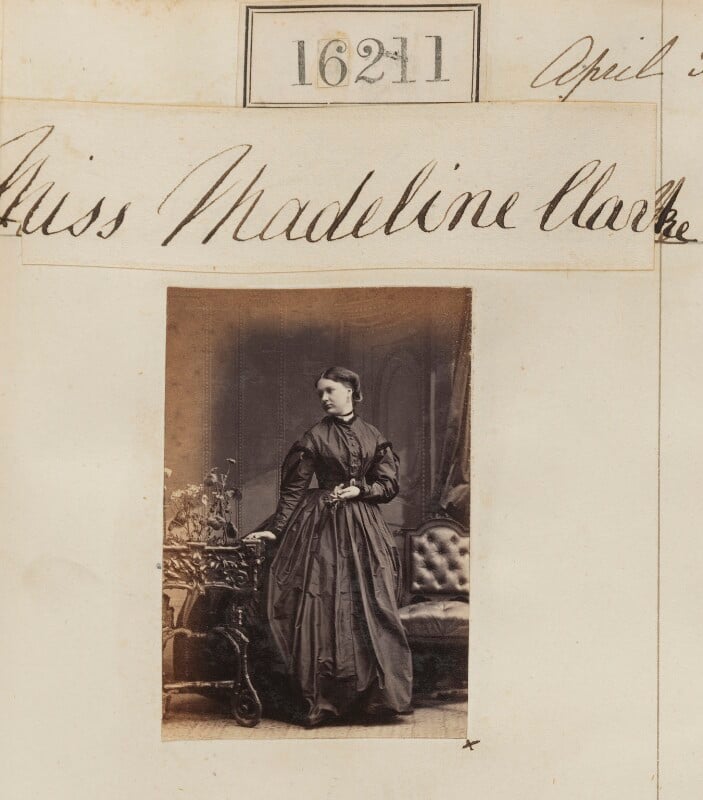 16211
April
Miss Madeline Clarke
x